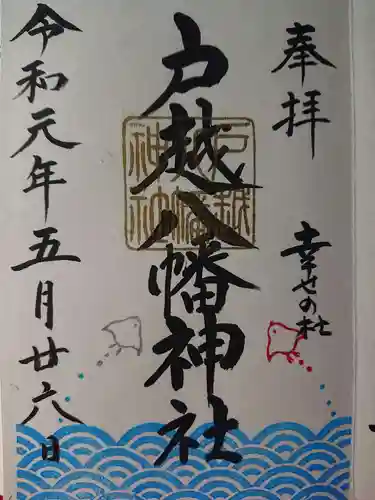 奉拝
幸せの杜
戸越八幡神社
戸越八幡神社
令和元年五月廿六日